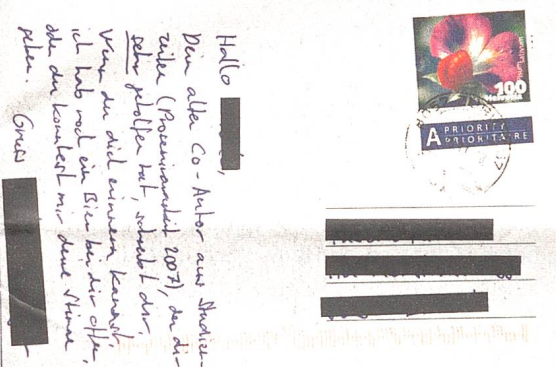 Hallo
Dein alter Co-Autor aus Studien-
zeiten (Proseminararbeit 2007), du dir
sehr geholfen hat, schreibt dir,
Wenn du dich erinnern kannst,
ich hab noch ein Bier bei dir offen,
oder du könntest mir deine Stimme
geben.
Gruss
100
HELVETIA
A PRIORITY
PRIORITAIRE